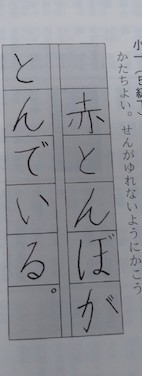 小一(8級)
かたちよい。せんがゆれないようにかこう
赤とんぼが
とんでいる。